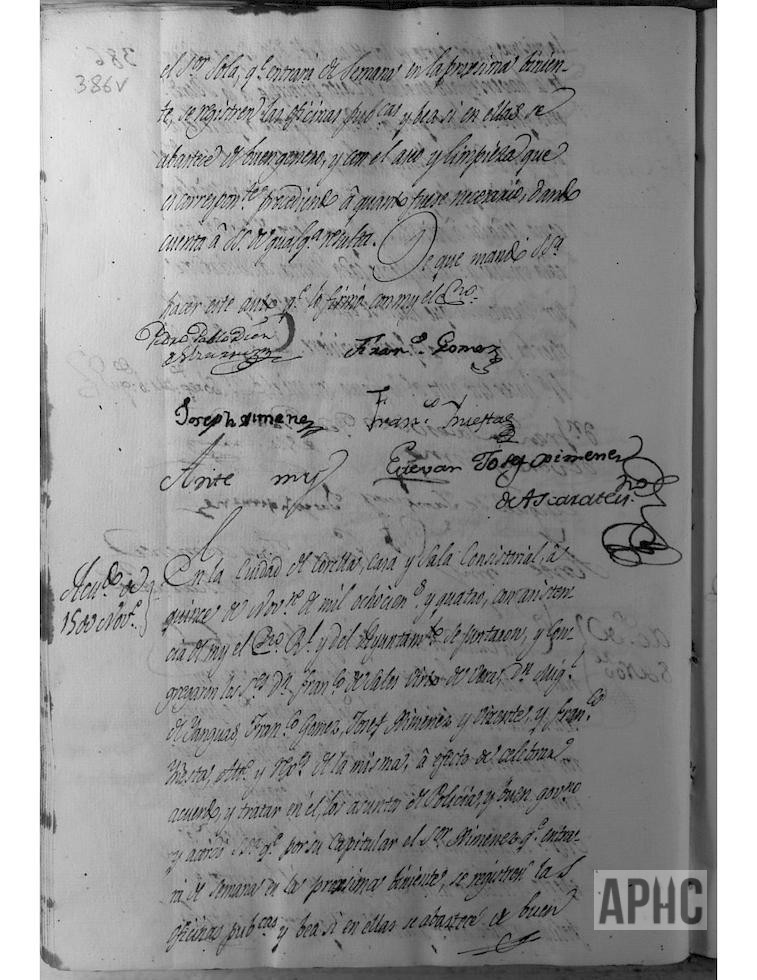 386v
el S.or Sola, q.e entrara de Semana en la proxima binien-
te, se registren las oficinas pub.cas y bea si en ellas se
abastece de buen genero, y con el aseo y limpieza que
es correspon.te procediendo â quanto fuese necesario, dando
cuenta â de qualq.a resulta. De que mandó
hacer este auto q.e lo firmó con my el Ess.no
Pedro Pablo Diez
Fran.co Gomez
Joseph Ximenez
Fran.co Huesta
Ante my
Estevan Josef Ximenez
de Ascarate
Acu.do de
15 de Nov.e
En la Ciudad de Corella, casa y Sala Consistorial, â
quince de Nov.re de mil ochocien.s y quatro, con asisten-
cia de my el Ess.no R.l y del Ayuntam.to se juntaron, y Con-
gregaron los S.res D.n Fran.co de Sales Virto de Vera, D.n Mig.l
de Yanguas, Fran.co Gomez, Josef Ximenez y Vicente, y Fran.co
Huesta, Alc.e y Reg.s de la misma, â efecto de celebrar
acuerdo, y tratar en el, los asuntos de Policia, y buen gov.no
y acordó q.e por su Capitular el S.or Ximenez q.e entra-
rá de Semana en la proxima biniente, se registren las
oficinas pub.cas y bea si en ellas se abastece de buen
APHC